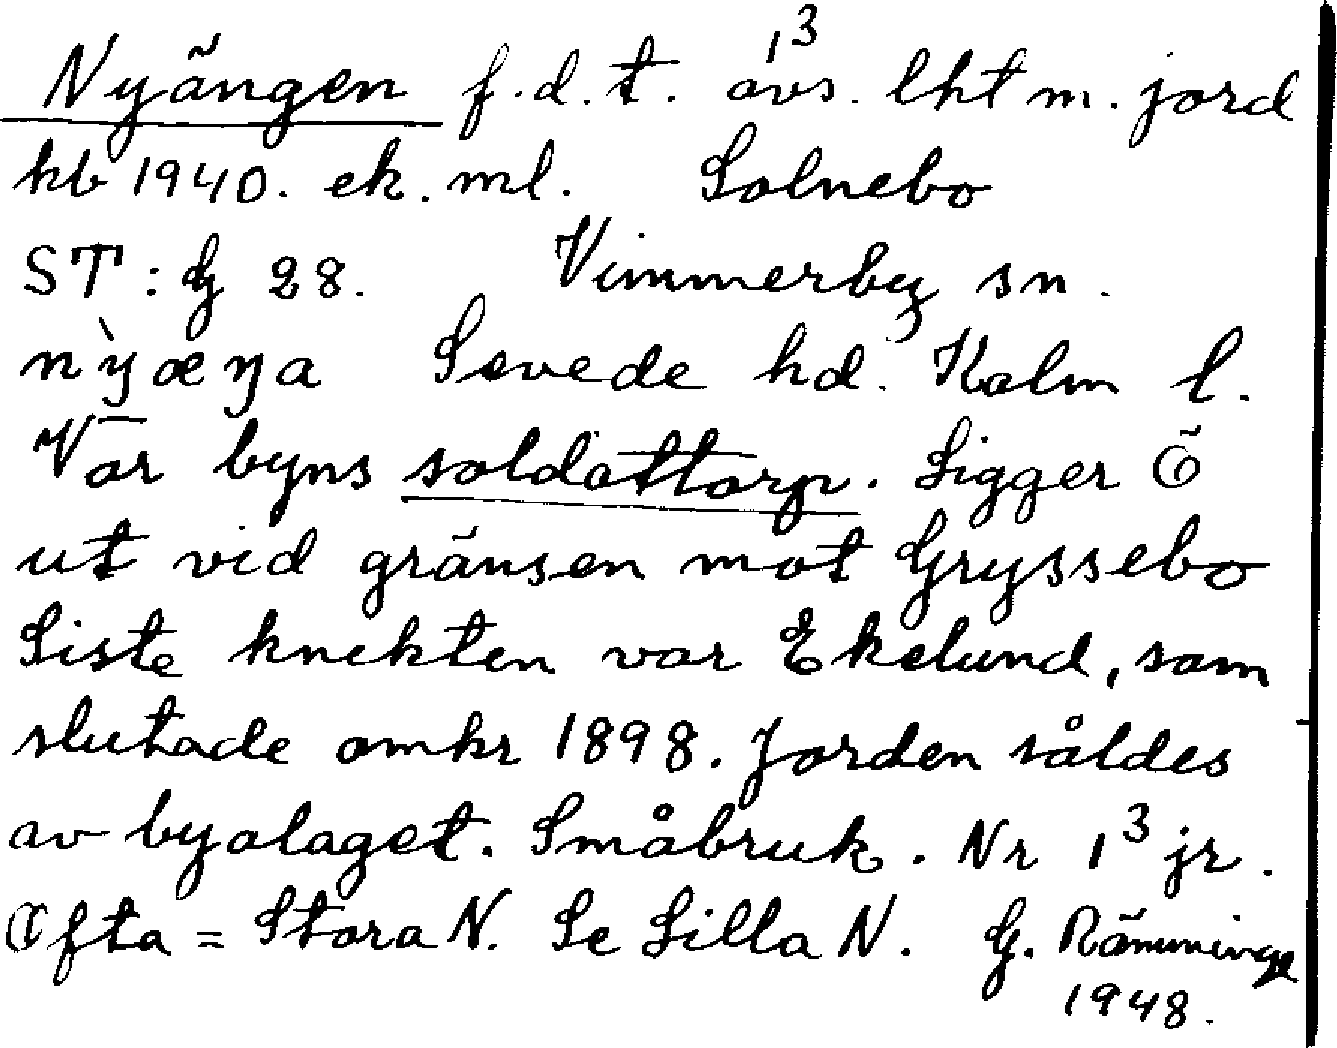 Nyängen f.d.t. 1³ avs. lht m. jord
hb 1940. ek. ml. Solnebo
ST: G 28. Vimmerby sn.
nỳæŋa Sevede hd. Kalm l.
Var byns soldattorp. Ligger Ö
ut vid gränsen mot Gryssebo
Siste knekten var Ekelund, som
slutade omkr 1898. Jorden såldes
av byalaget. Småbruk. Nr 1³ jr.
Ofta = Stora N. Se Lilla N. G. Rämminge
1948.